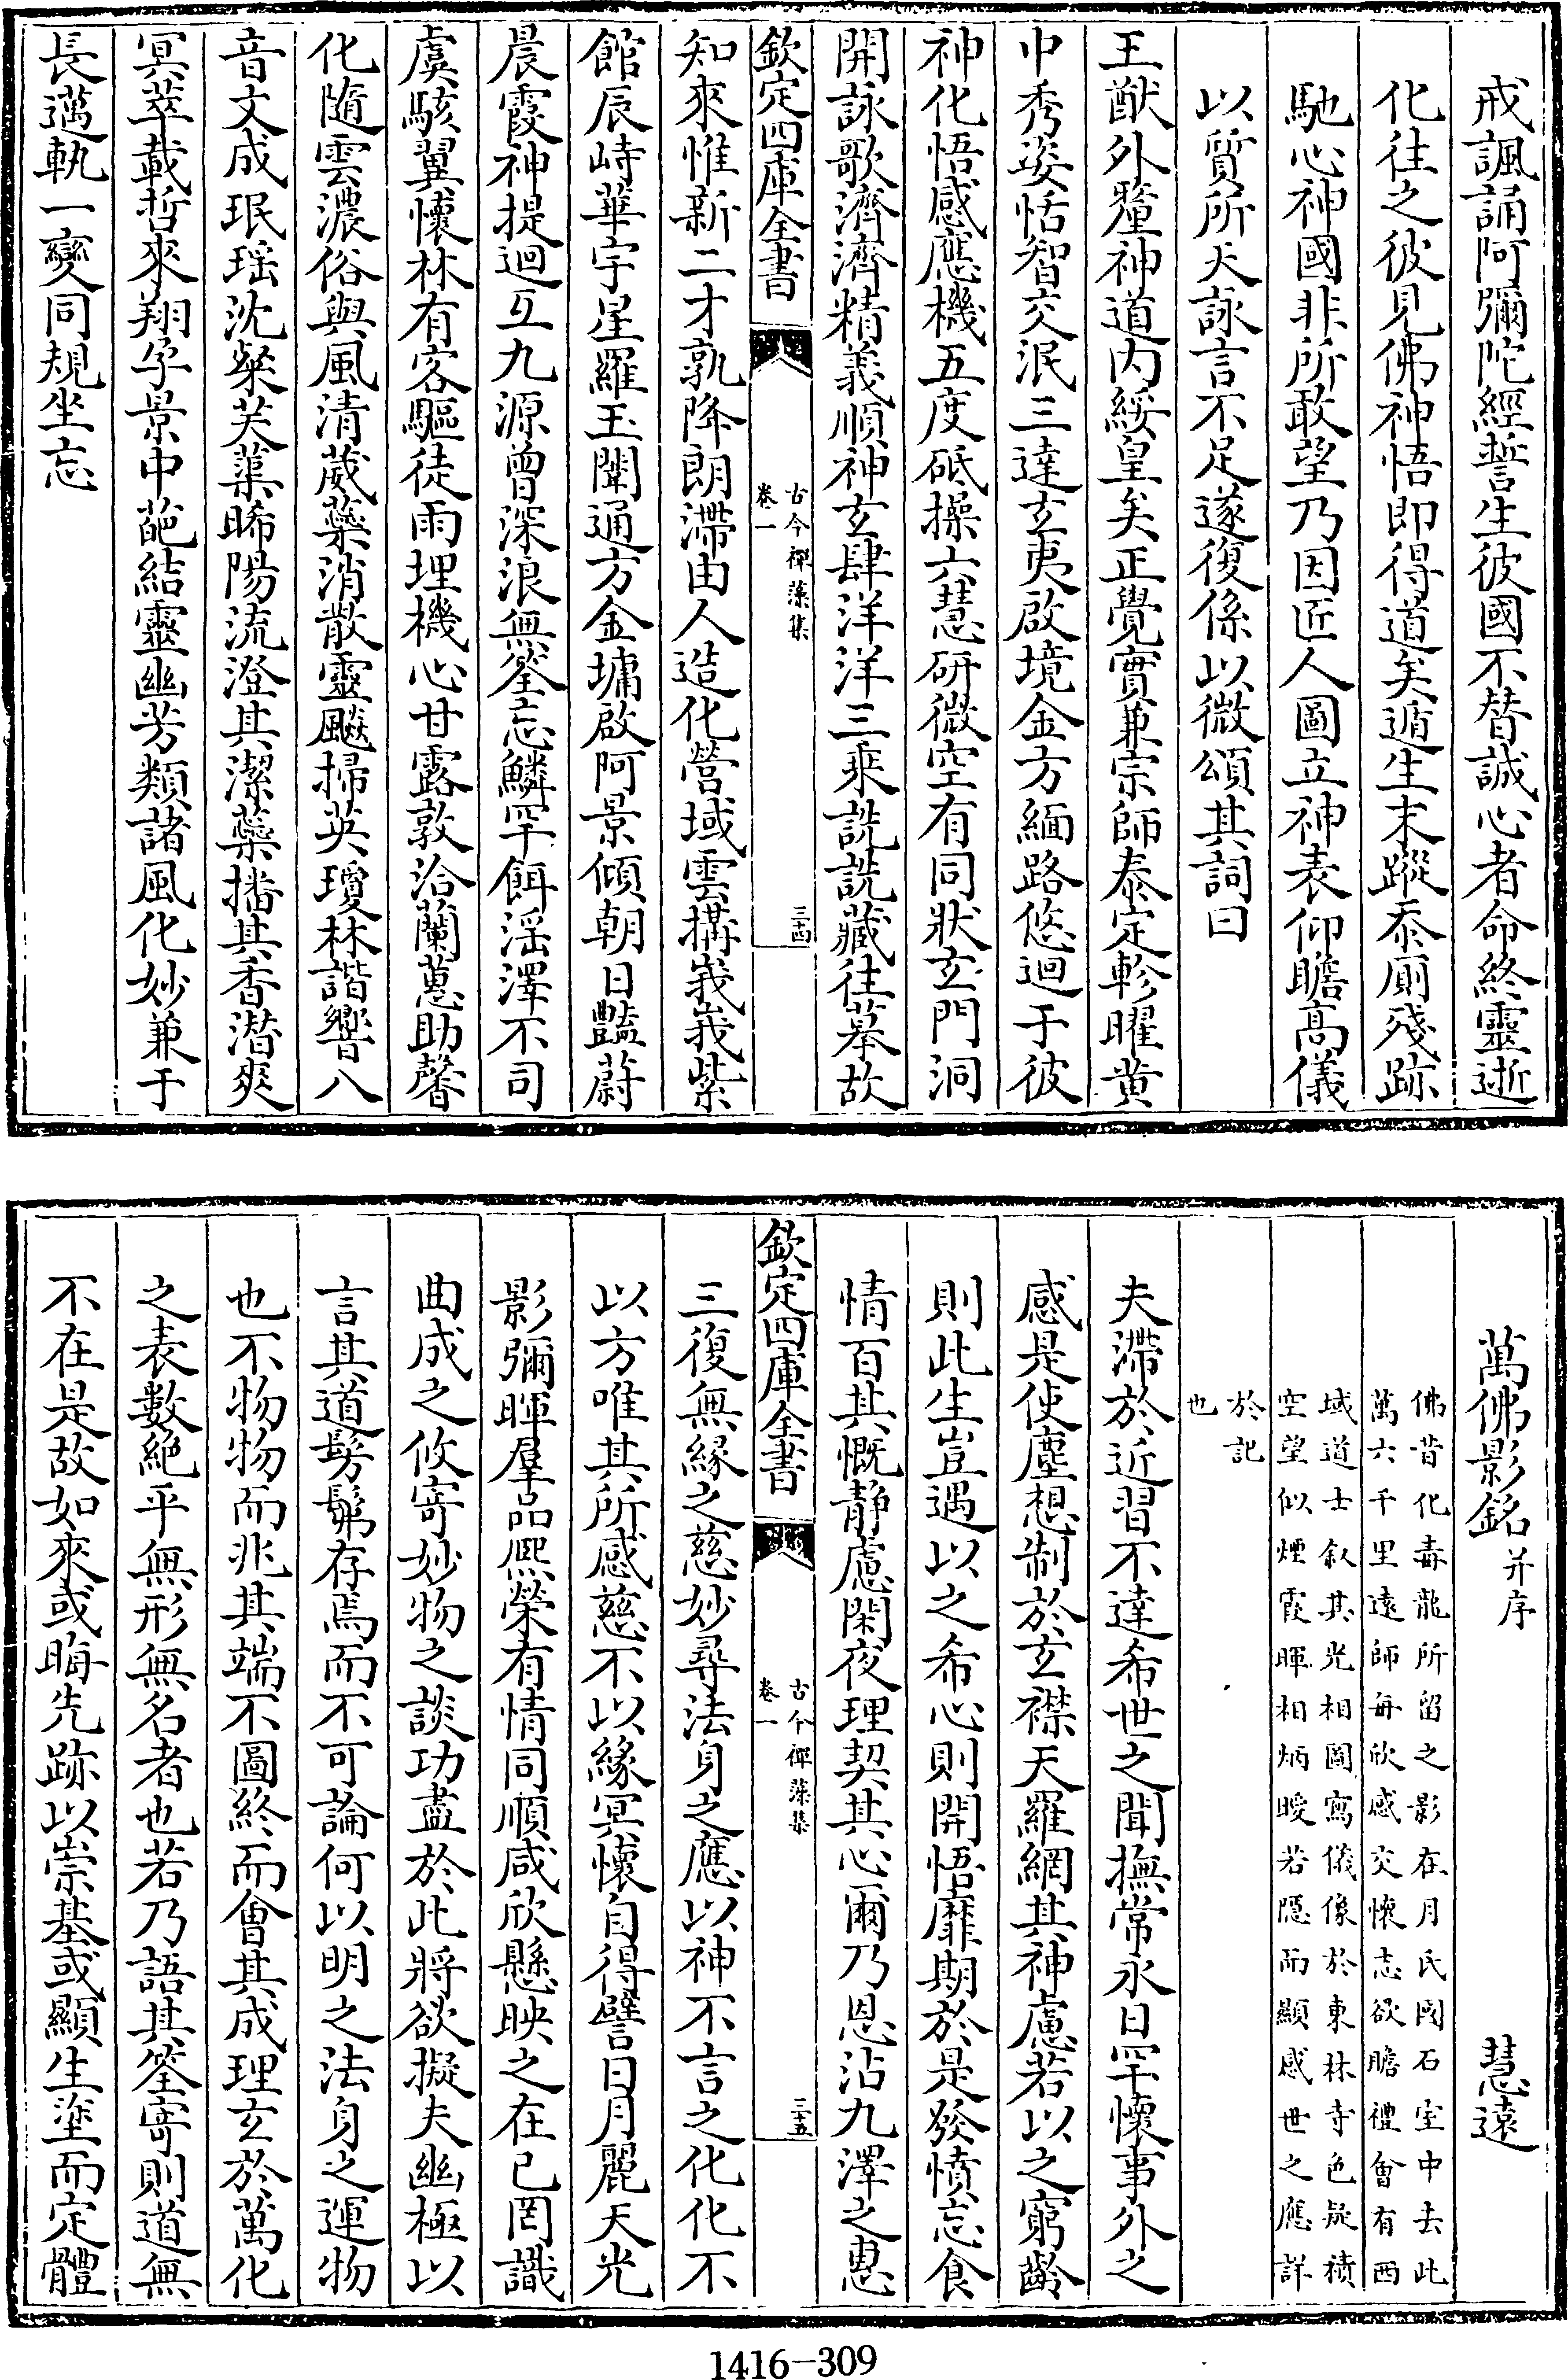 戒諷誦阿彌陀經誓生彼國不替誠心者命終靈逝
化往之彼見佛神悟即得道矣遁生末蹤忝廁殘跡
馳心神國非所敢望乃因匠人圖立神表仰瞻高儀
以質所天詠言不足遂復係以微頌其詞曰
王猷外釐神道内綏皇矣正覺實兼宗師泰定軫曜黄
中秀姿恬智交泯三達玄夷啟境金方緬路悠迴于彼
神化悟感應機五度砥操六慧研微空有同狀玄門洞
開詠歌濟濟精義順神玄肆洋洋三乘詵詵藏往摹故
欽定四庫全書
古今禪藻集
卷一
三十四
知來惟新二才孰降朗滯由人造化營域雲搆峩峩紫
館辰峙華宇星羅玉闈通方金墉啟阿景傾朝日豔蔚
晨霞神提迴互九源曾深浪無筌忘鱗罕餌淫澤不司
虞駭翼懷林有客驅徒雨埋機心甘露敦洽蘭蕙助馨
化隨雲濃俗與風清葳蘂消散靈飈掃英瓊林諧響八
音文成珉瑶沈粲芙蕖晞陽流澄其潔蘂播其香潛爽
冥萃載哲來翔孕景中葩結靈幽芳類諸風化妙兼于
長邁軌一變同規坐忘
萬佛影銘并序 慧遠
佛昔化毒龍所留之影在月氏國石室中去此
萬六千里遠師每欣感交懷志欲瞻禮會有西
域道士叙其光相圖寫儀像於東林寺色疑積
空望似煙霞暉相炳㬊若隱而顯感世之應詳
於記
也
夫滯於近習不達希世之聞撫常永日罕懷事外之
感是使塵想制於玄襟天羅網其神慮若以之窮齡
則此生豈遇以之希心則開悟靡期於是發憤忘食
情百其慨静慮閑夜理契其心爾乃恩沾九澤之惠
欽定四庫全書
古今禪藻集
卷一
三十五
三復無緣之慈妙尋法身之應以神不言之化化不
以方唯其所感慈不以緣冥懷自得譬日月麗天光
影彌暉羣品熙榮有情同順咸欣懸映之在已罔識
曲成之攸寄妙物之談功盡於此將欲擬夫幽極以
言其道髣髴存焉而不可論何以明之法身之運物
也不物物而兆其端不圖終而會其成理玄於萬化
之表數絶乎無形無名者也若乃語其筌寄則道無
不在是故如來或晦先跡以崇基或顯生塗而定體
1416-309